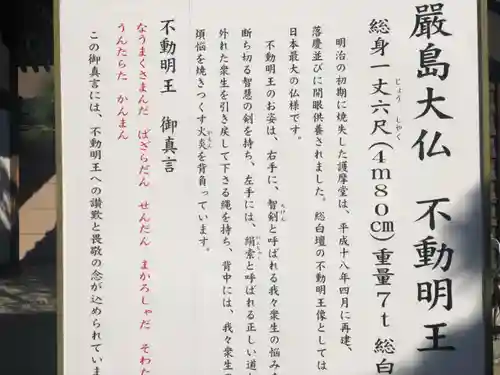 嚴島大仏 不動明王
総身一丈六尺(4m80㎝)重量7t 総白
じょう しゃく
明治の初期に焼失した護摩堂は、平成十八年四月に再建、
落慶並びに開眼供養されました。総白壇の不動明王像としては
日本最大の仏様です。
不動明王のお姿は、右手に、智剣と呼ばれる我々衆生の悩み
ちけん
断ち切る智慧の剣を持ち、左手には、羂索と呼ばれる正しい道
けんじゃく
外れた衆生を引き戻して下さる縄を持ち、背中には、我々衆生
煩悩を焼きつくす火炎を背負っています。
かえん
不動明王 御真言
なうまくさまんだ ばざらだん せんだん まかろしゃだ そわた
うんたらた かんまん
この御真言には、不動明王への讃歎と畏敬の念が込められていま